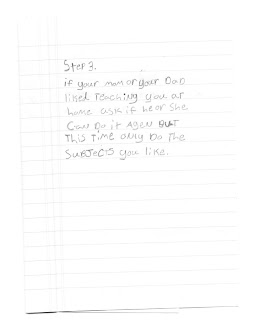 Step 3.
if your mom or your DaD
liked Teaching you at
home ask if he or She
Can Do it Agen BUT
THis Time only Do The
SuBJecTs you like.